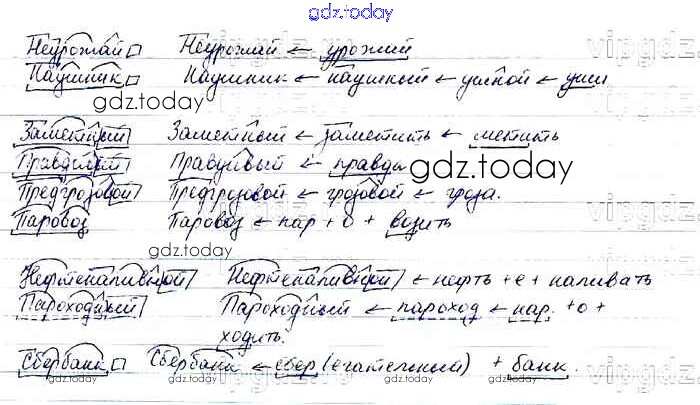 gdz.today
Неурожай Неурожай ← урожай
vipgdz.
Наушник Наушник ← наушный ← ушной ← уши
gdz.today
Заметный Заметный ← заметить ← метить
Правдивый Правдивый ← правда
gdz.today
Предгрозовой Предгрозовой ← грозовой ← гроза.
vipgdz
Паровоз Паровоз ← пар + о + возить
gdz.today
Нефтеналивной Нефтеналивной ← нефть + е + наливать
vipgdz
Пароходный Пароходный ← пароход ← пар. + о +
ходить.
Сбербанк Сбербанк ← сбер (егательный) + банк.
gdz.today gdz.today gdz.today
vipgdz